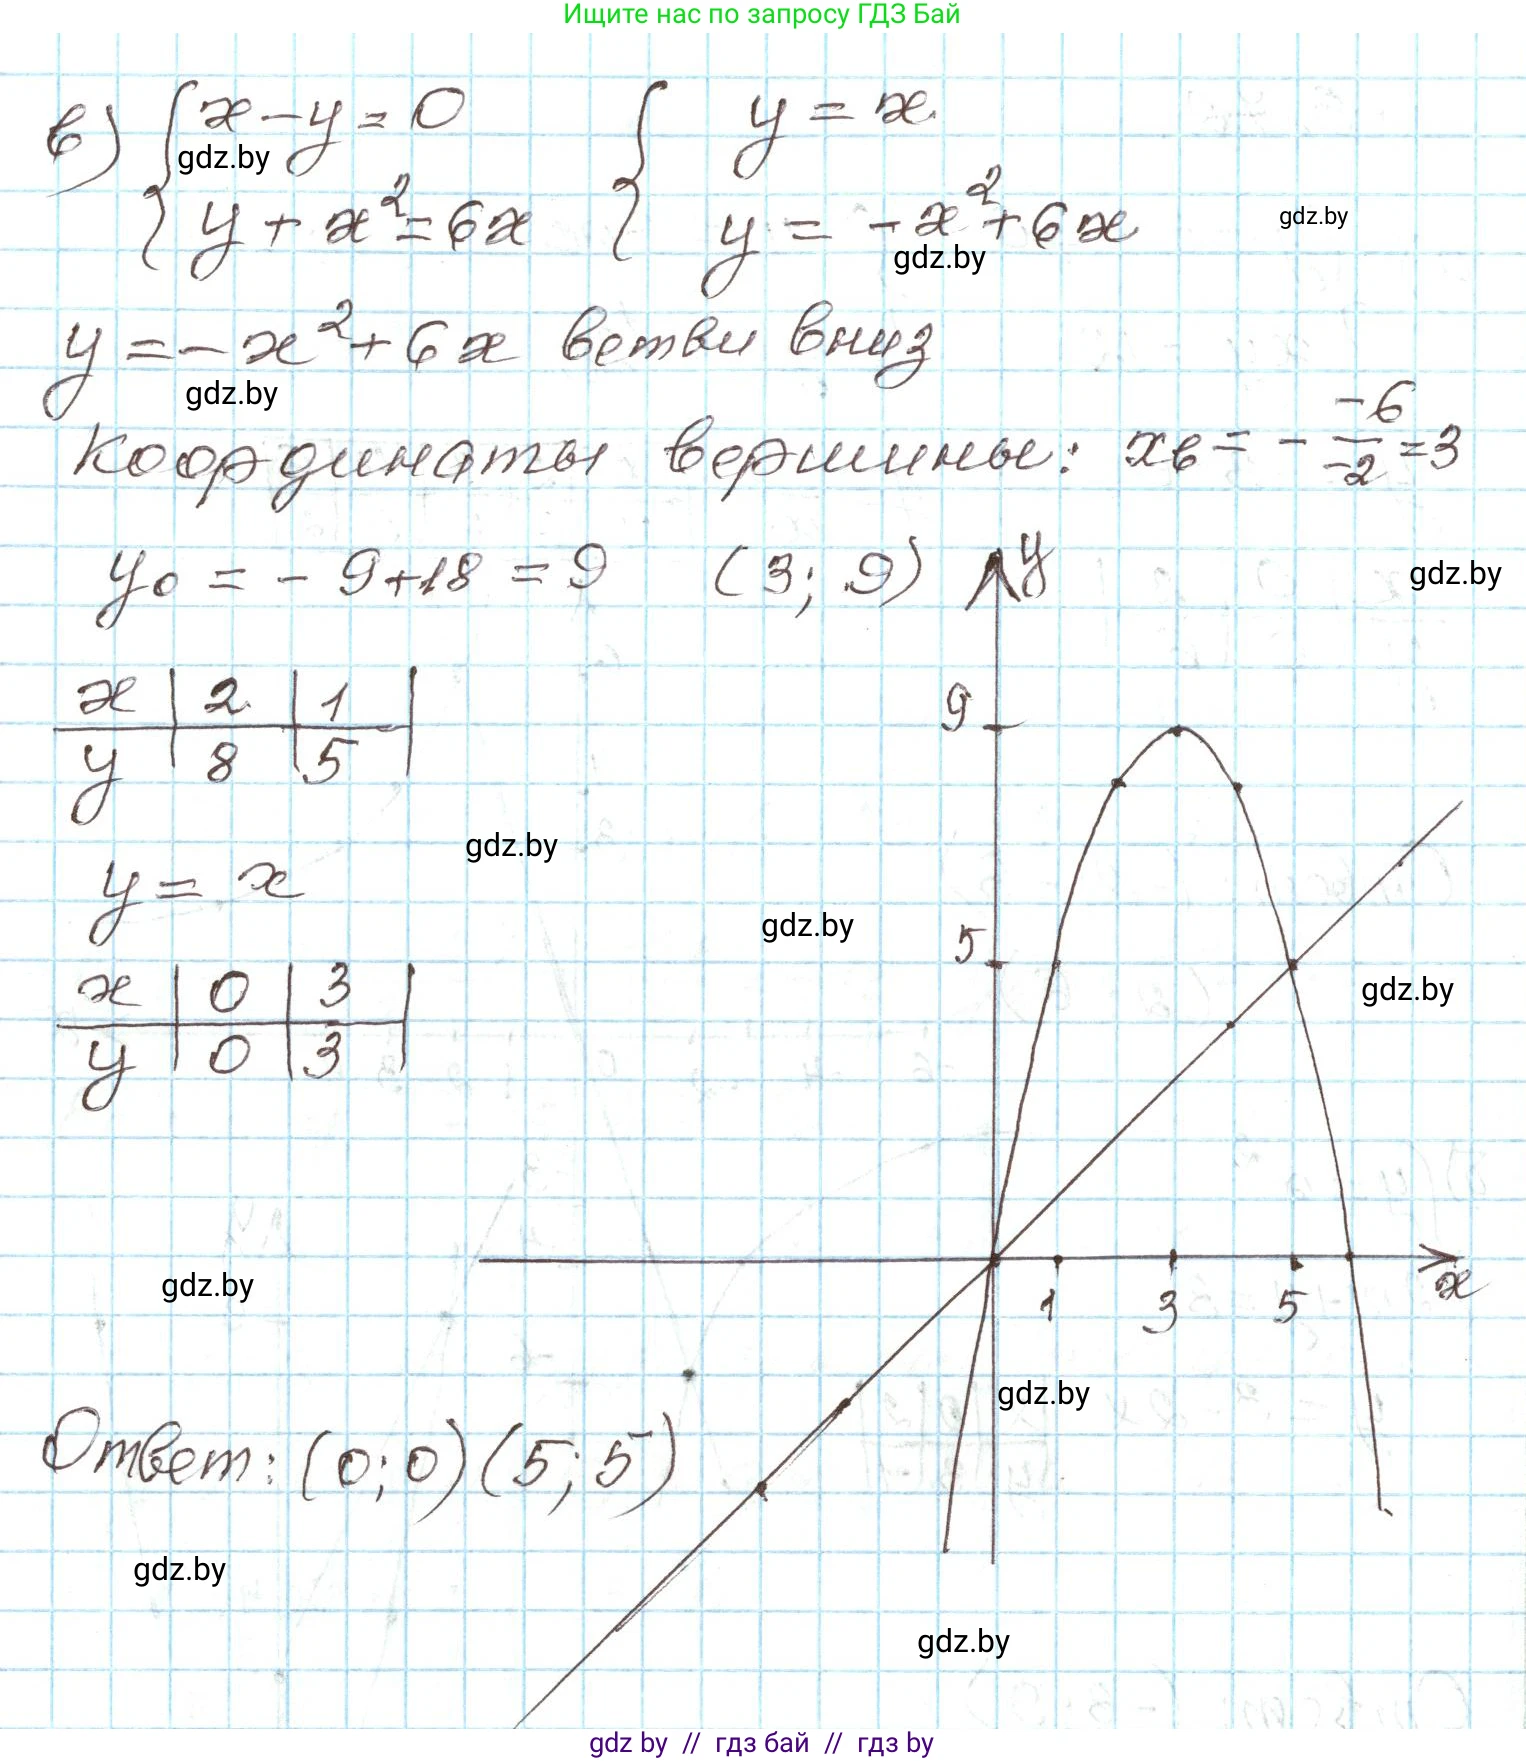 Ищите нас по запросу ГДЗ Бай
в) { x - y = 0 { y = x
gdz.by
y + x² = 6x y = -x² + 6x
gdz.by
gdz.by
y = -x² + 6x ветви вниз
gdz.by
Координаты вершины: xв = - -6/-2 = 3
y₀ = - 9 + 18 = 9 (3; 9)
y
gdz.by
x | 2 | 1 |
y | 8 | 5 |
9
gdz.by
y = x
gdz.by
5
gdz.by
x | 0 | 3 |
y | 0 | 3 |
gdz.by
1 3 5 x
gdz.by
Ответ: (0; 0) (5; 5)
gdz.by
gdz.by
gdz by // гдз бай // гдз by